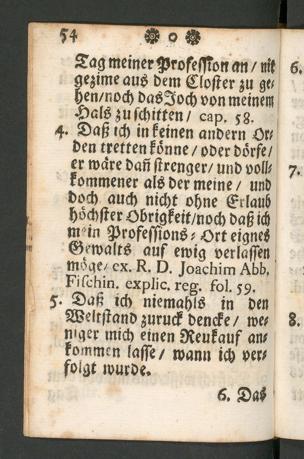 54
Tag meiner Profession an / nit
gezime aus dem Closter zu ge-
hen / noch das Joch von meinem
Hals zu schitten / cap. 58.
4. Daß ich in keinen andern Or-
den tretten könne / oder dörfe /
er wäre dañ strenger / und voll-
kommener als der meine / und
doch auch nicht ohne Erlaub
höchster Obrigkeit / noch daß ich
mein Professions-Ort eignes
Gewalts auf ewig verlassen
möge / ex R. D. Joachim Abb.
Fischin. explic. reg. fol. 59.
5. Daß ich niemahls in den
Weltstand zuruck dencke / we-
niger mich einen Reukauf an-
kommen lasse / wann ich ver-
folgt wurde.
6. Das
6.
7.
8.